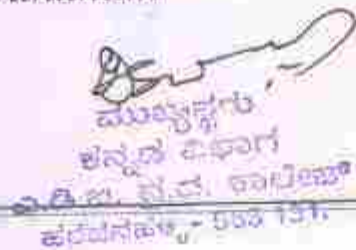 ಮುಖ್ಯಸ್ಥರು
ಕನ್ನಡ ವಿಭಾಗ
ಎ.ಡಿ.ಬಿ. ಪ್ರ.ದ. ಕಾಲೇಜ್
ಹರಪನಹಳ್ಳಿ - 583 131.